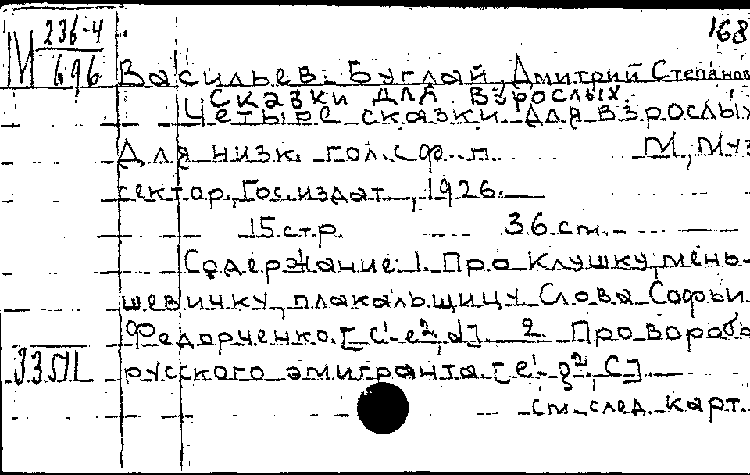 168
М 236-4
696
Васильев-Буглай, Дмитрий Степанов
Сказки для взрослых.
Четыре сказки для взрослых
Для низк. гол. с ф.-п. М., Муз
сектор, Гос. издат, 1926.
15 стр. 36 см.
Содержание: 1. Про Клушку, мень-
шевичку, плакальщицу Слова Софьи
Федорченко. [c¹-e²,d]. 2. Про вороб
русского эмигранта. [e¹-g²,C]
см. след. карт.